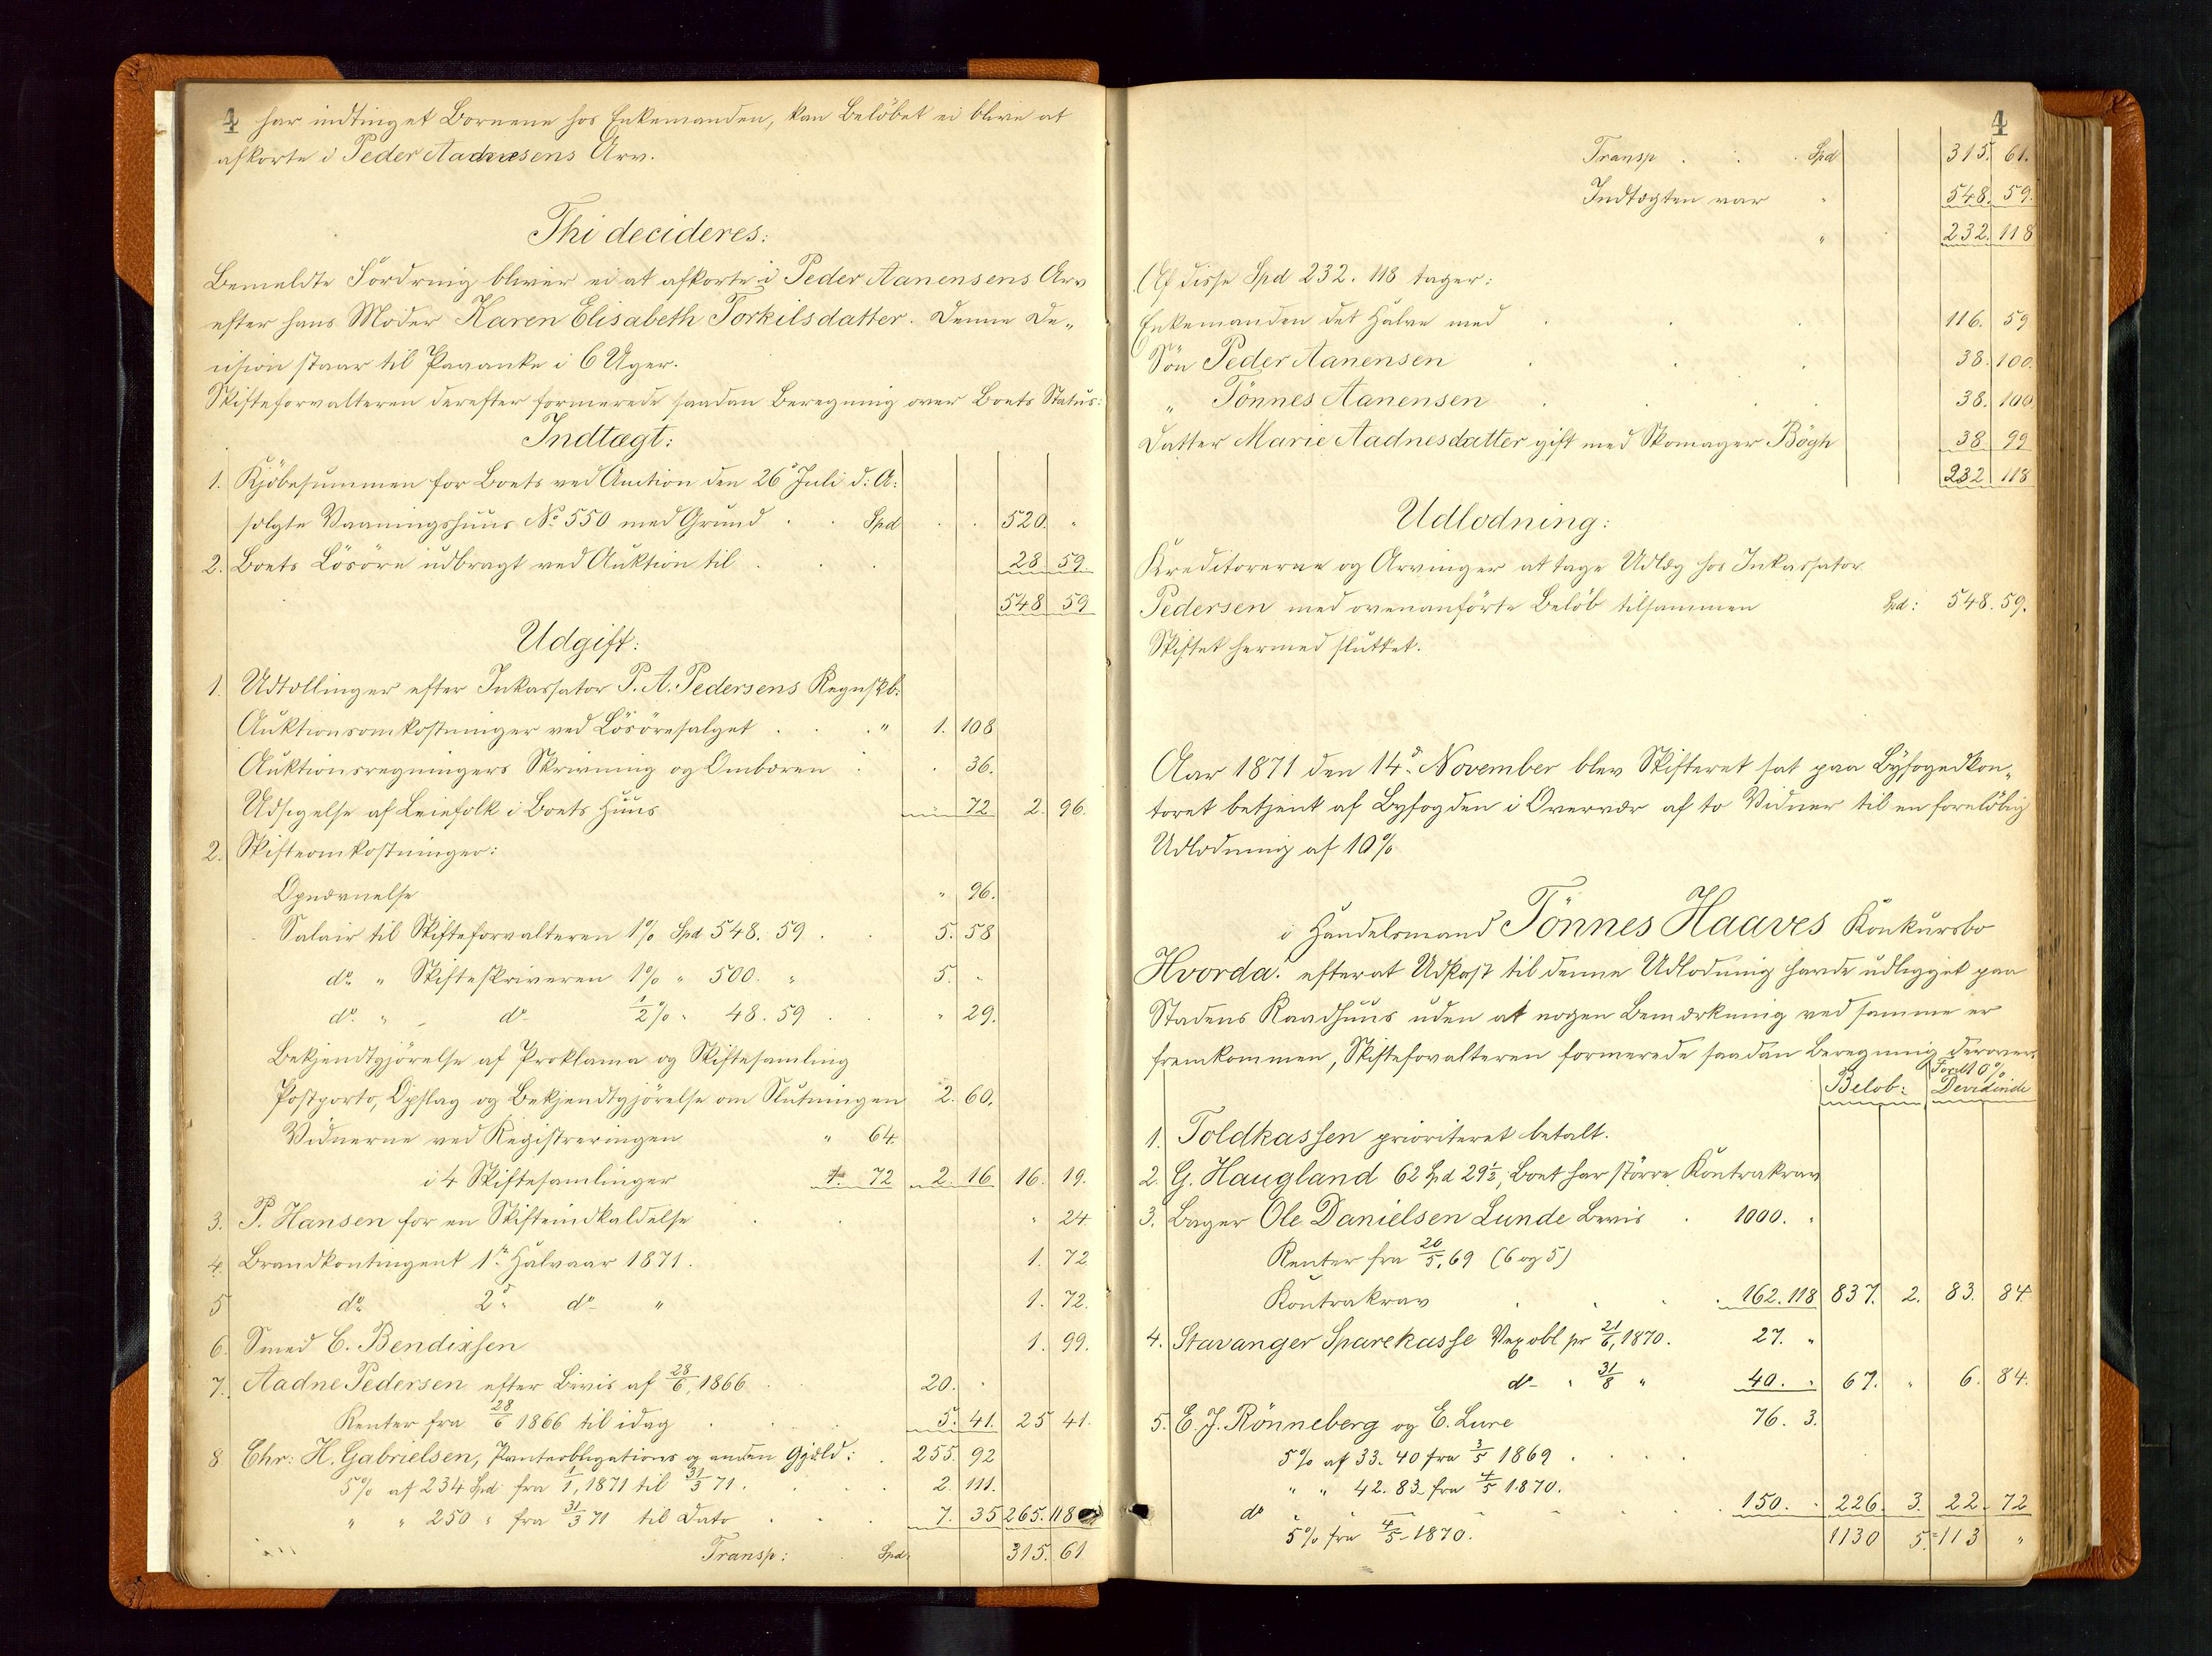 4 har indtinget Börnene hos Enkemanden, kan Belöbet ei blive at
afkorte i Peder Aadnesens Arv.
Thi decideres:
Bemeldte Fordring bliver ei at afkorte i Peder Aanensens Arv
efter hans Moder Karen Elisabeth Torkilsdatter. Denne De„
cision staar til Paaanke i 6 Uger.
Skifteforvalteren derefter formerede saadan Beregning over Boets Status:
Indtægt:
1. Kjöbesummen for Boets ved Auction den 26d Juli d: A:
solgte Vaaningshuus No. 550 med Grund . . Spd . . 520. "
2. Boets Lösöre udbragt ved Auktion til . . . 28 59
548 59
Udgift:
1. Udtællinger efter Inkassator P. A. Pedersens Regnskb:
Auktionsomkostninger ved Lösöresalget . . . " 1. 108
Auktionsregningers Skrivning og Ombæren . . 36.
Udsigelse af Leiefolk i Boets Huus " 72 2. 96.
2. Skifteomkostninger:
Opnævnelse " 96.
Salair til Skifteforvalteren 1% Spd 548. 59 . . 5. 58
do " Skifteskriveren 1% " 500. " 5. "
do " " do 1/2% " 48. 59 . . " 29.
Bekjendtgjörelse af Proklama og Skiftesamling
Postporto, Opslag og Bekjendtgjörelse om Slutningen 2. 60.
Vidnerne ved Registreringen " 64.
i 4 Skiftesamlinger 1. 72 2. 16 16. 19.
3. P. Hansen for en Skifteindkaldelse . . " 24
4. Brandkontingent 1ste Halvaar 1871. 1. 72
5 do 2d do " 1. 72.
6. Smed C. Bendixsen 1. 99.
7. Aadne Pedersen efter Bevis af 28/6, 1866 . . 20. "
Renter fra 28/6 1866 til idag . . . 5. 41. 25 41.
8 Chr: H. Gabrielsen, Panteobligations og anden Gjæld: . 255. 92
5% af 234 Spd fra 1/1, 1871 til 31/3 71. . . . 2. 111.
" " 250 " fra 31/3 71 til Dato . . . 7. 35 265. 118
Transp: . Spd: 315. 61
4
Transp . . . Spd 315. 61.
Indtægten var " 548. 59.
" 232. 118
Af disse Spd 232. 118 tager:
Enkemanden det Halve med . . . 116. 59
Sön Peder Aanensen . . . 38. 100.
" Tönnes Aanensen . . . 38. 100
Datter Marie Aadnesdatter gift med Skomager Bögh 38 99
232 118
Udlodning:
Kreditorerne og Arvinger at tage Udlæg hos Inkassator
Pedersen med ovenanförte Belöb tilsammen Spd: 548. 59.
Skiftet hermed sluttet.
Aar 1871 den 14d November blev Skifteret sat paa Byfogedkon„
toret betjent af Byfogden i Overvær af to Vidner til en foreløbig
Udlodning af 10%
i Handelsmand Tönnes Haaves Konkursbo
Hvorda: efterat Udkast til denne Udlodning havde udligget paa
Stadens Raadhuus uden at nogen Bemærkning ved samme er
fremkommen, Skifteforvalteren formerede saadan Beregning derover:
Belöb: Forelt 0% Devidinde
1. Toldkassen prioriteret betalt.
2. G. Haugland 62 Spd 29 1/2, Boet har större Kontrakrav
3. Bager Ole Danielsen Lunde Bevis . 1000. "
Renter fra 20/5, 69 (6 og 5)
Kontrakrav . . . 162. 118 837. 2. 83. 84.
4. Stavanger Sparekasse Vexobl pr 21/6, 1870. 27. "
do " 31/8 " 40. " 67. " 6. 84.
5. E. J. Rönneberg og E. Lure 76. 3.
5% af 33. 40 fra 3/5 1869 . . . .
" " 42. 83 fra 4/5 1870.
do . . . . . . 150. . 226. 3. 22. 72
5% fra 4/5 1870. 1130 5. 113 "